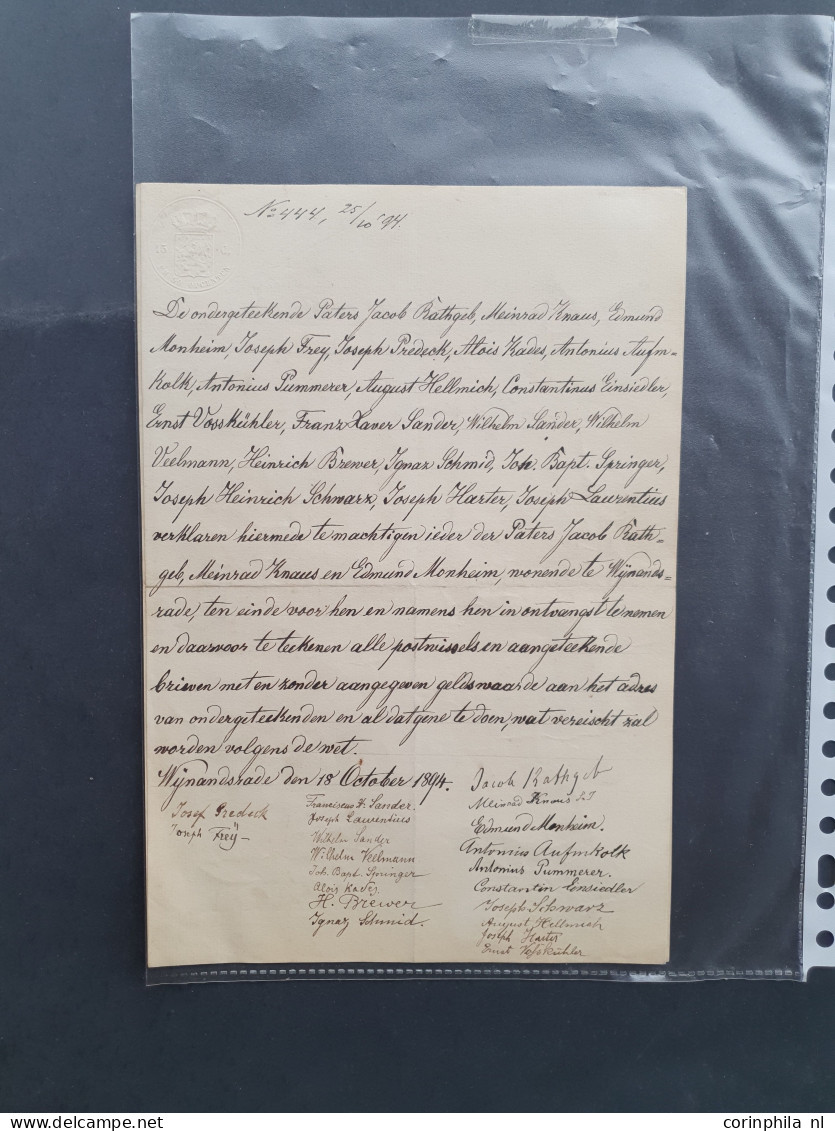 No 444, 25/10 '94.
De ondergeteekende Paters Jacob Rathgeb, Meinrad Knaus, Edmund
Monheim, Joseph Frey, Joseph Predeck, Alois Kades, Antonius Aufm-
kolk, Antonius Pummerer, August Hellmich, Constantinus Einsiedler,
Ernst Vosskühler, Franz Xaver Sander, Wilhelm Sander, Wilhelm
Veelmann, Heinrich Brewer, Ignaz Schmid, Joh. Bapt. Springer,
Joseph Heinrich Schwarz, Joseph Harter, Joseph Laurentius
verklaren hiermede te machtigen ieder der Paters Jacob Rath-
geb, Meinrad Knaus en Edmund Monheim, wonende te Wijnands-
rade, ten einde voor hen en namens hen in ontvangst te nemen
en daarvoor te teekenen alle postwissels en aangeteekende
brieven met en zonder aangegeven geldswaarde aan het adres
van ondergeteekenden en al datgene te doen, wat vereischt zal
worden volgens de wet.
Wijnandsrade den 18 October 1894.
Jacob Rathgeb
Meinrad Knaus S.J
Edmund Monheim.
Antonius Aufmkolk
Antonius Pummerer.
Constantin Einsiedler
Joseph Schwarz
August Hellmich
Joseph Harter
Ernst Voßkühler
Franciscus X. Sander.
Joseph Laurentius
Wilhelm Sander
Wilhelm Veelmann
Joh. Bapt. Springer
Alois Kades
H. Brewer
Ignaz Schmid.
Josef Predeck
Joseph Frey
corinphila nl